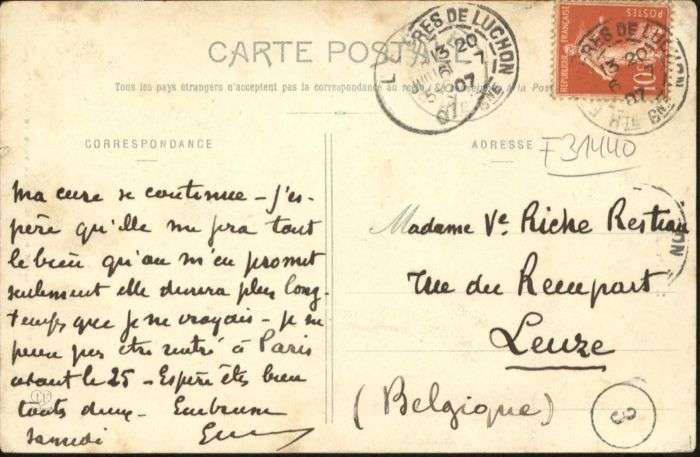 CARTE POSTALE
Tous les pays étrangers n'acceptent pas la correspondance au
CORRESPONDANCE
ADRESSE
F31440
RES DE LUCHON
13 20
7
07
HTE
RES DE LUCHON
13 20
6
07
HTE GNE
POSTES
RÉPUBLIQUE FRANÇAISE
10
Ma cure se continue – J'es-
père qu'elle me fera tout
le bien qu'on m'en promet
seulement elle durera plus long-
temps que je ne croyais – je ne
pense pas être rentré à Paris
avant le 25 – Espère êtes bien
toutes deux –
Samedi
Madame Ve Riche Restiau
rue du Rempart
Leuze
(Belgique)
3